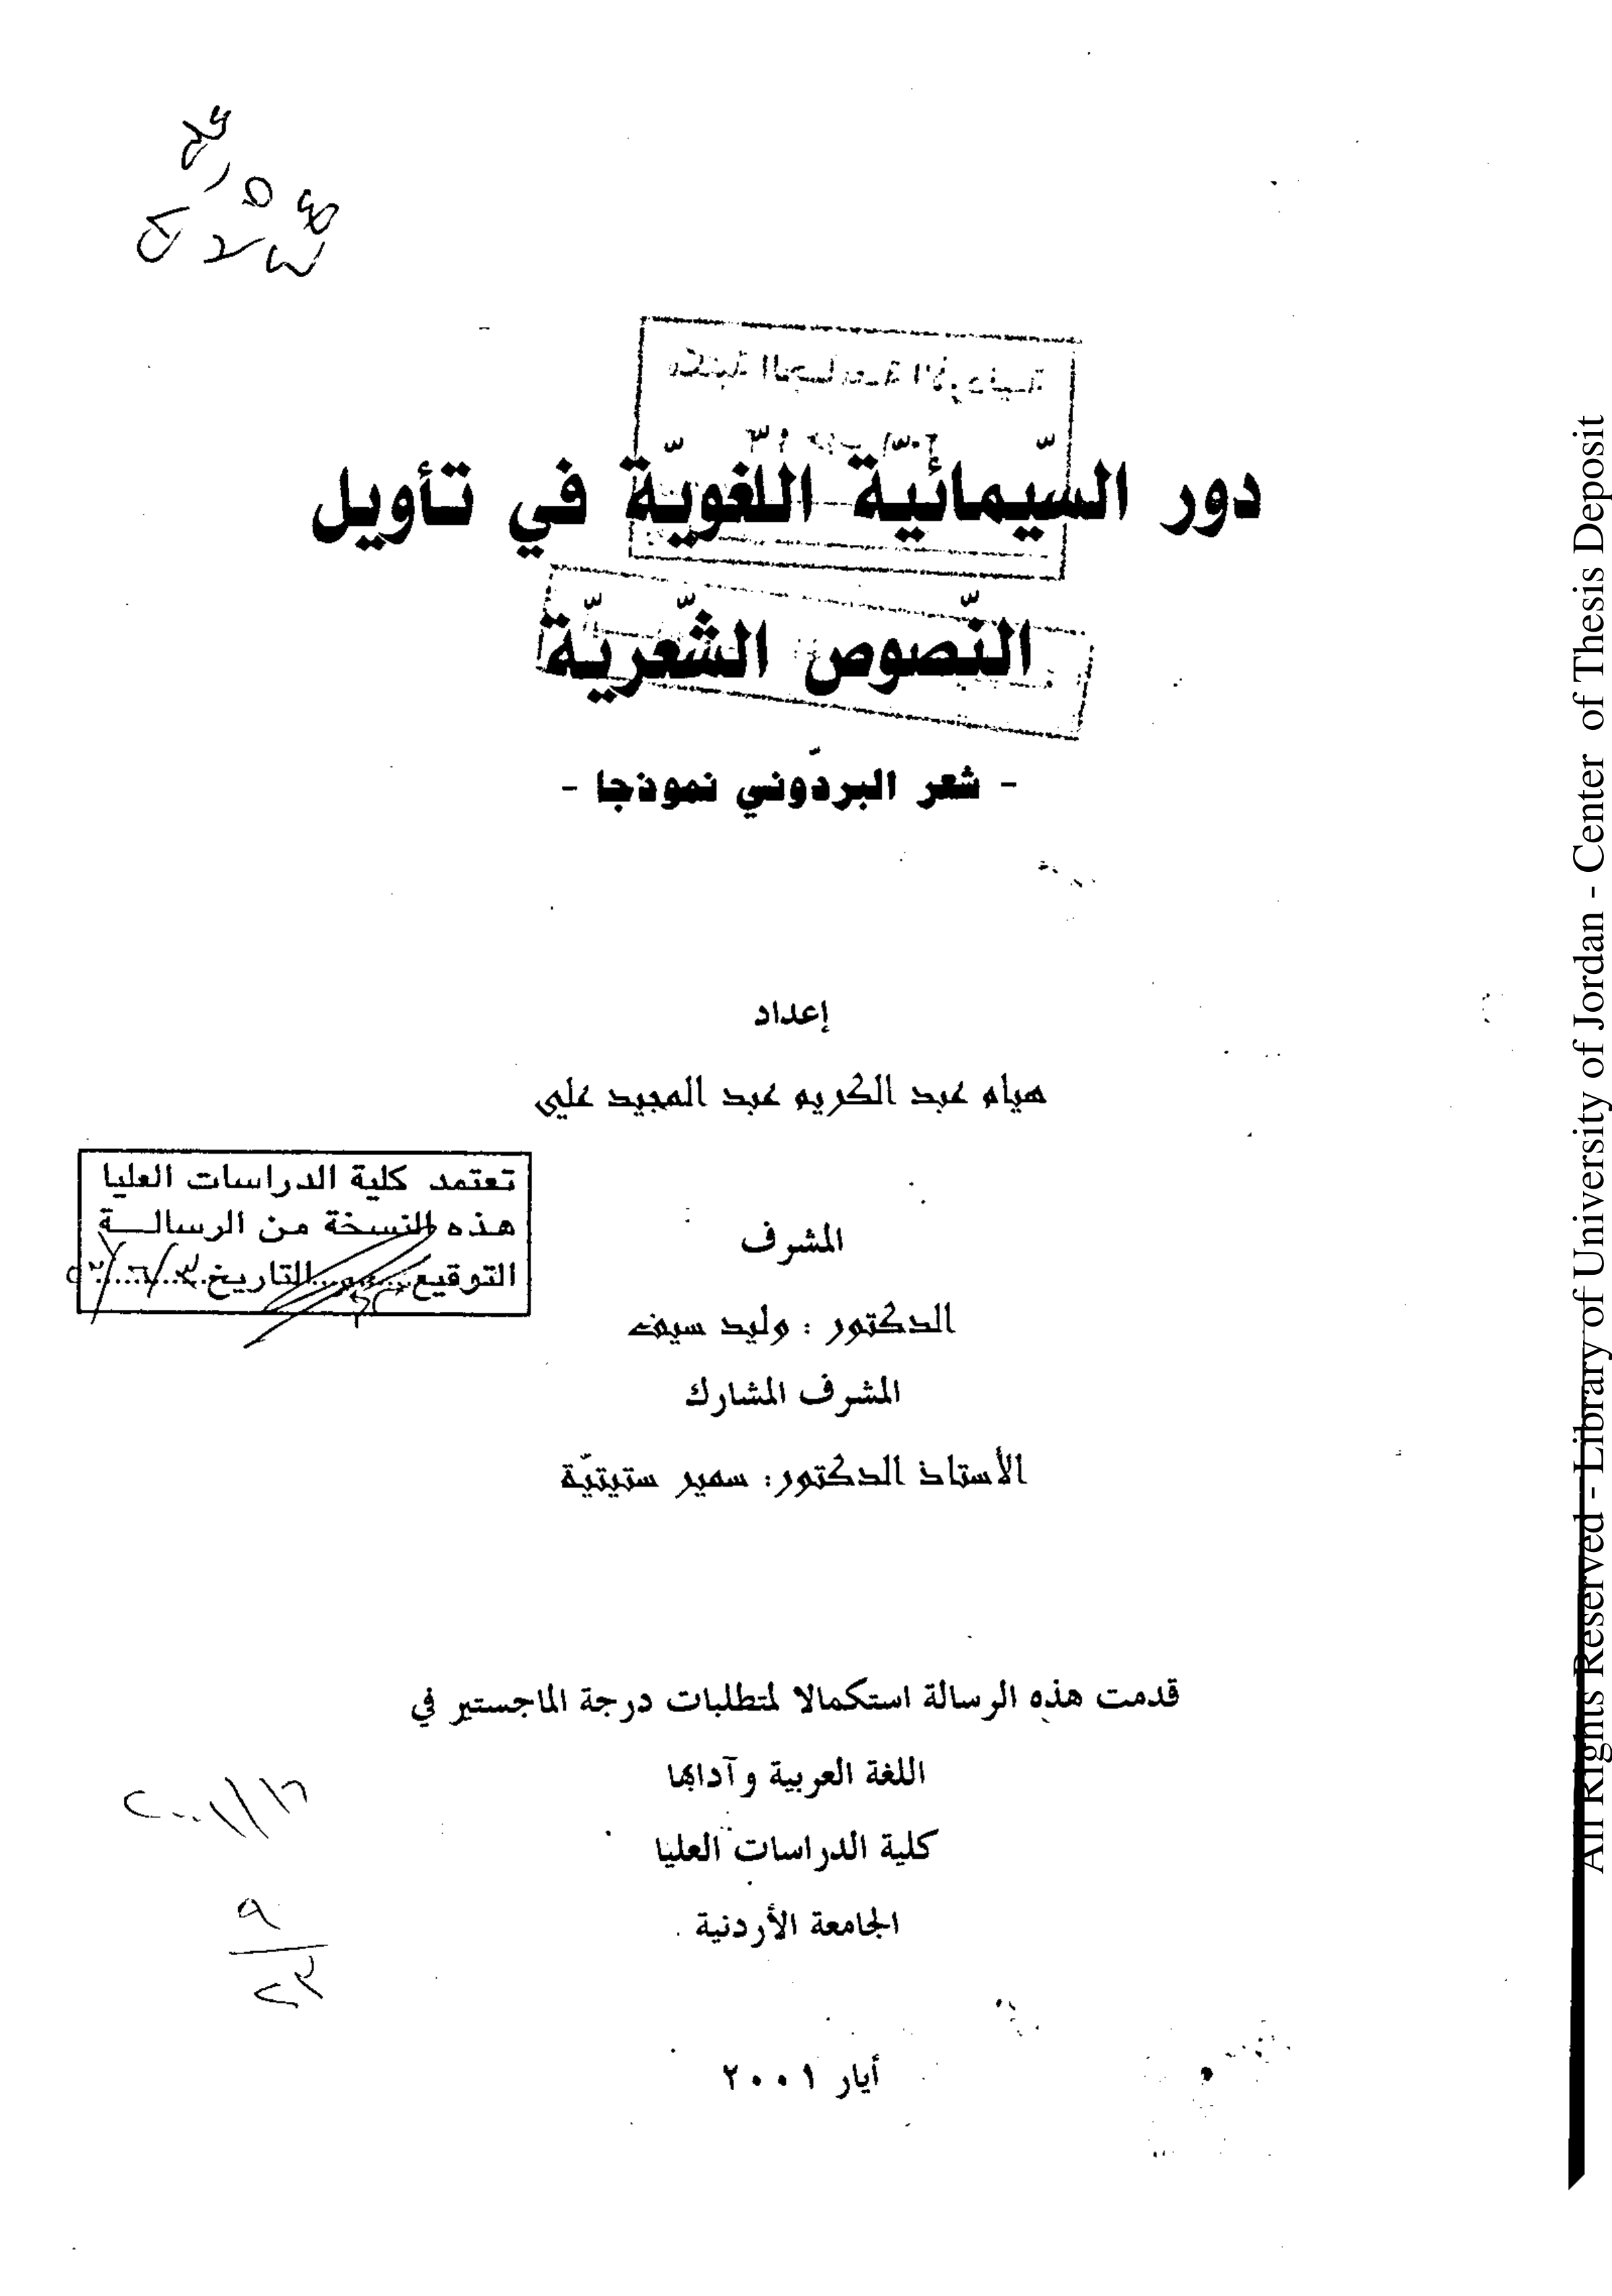 مكتبة الجامعة الأردنية
دور السّيمائيّة اللّغويّة في تأويل
النّصوص الشّعريّة
- شعر البردّوني نموذجا -
إعداد
هيام عبد الكريم عبد المجيد علي
تعتمد كلية الدراسات العليا
هذه النسخة من الرسالـــة
التوقيع.........التاريخ.........
المشرف
الدكتور : وليد سيف
المشرف المشارك
الأستاذ الدكتور: سمير ستيتيّة
قدمت هذه الرسالة استكمالا لمتطلبات درجة الماجستير في
اللغة العربية وآدابها
كلية الدراسات العليا
الجامعة الأردنية
أيار ٢٠٠١
All Rights Reserved - Library of University of Jordan - Center of Thesis Deposit